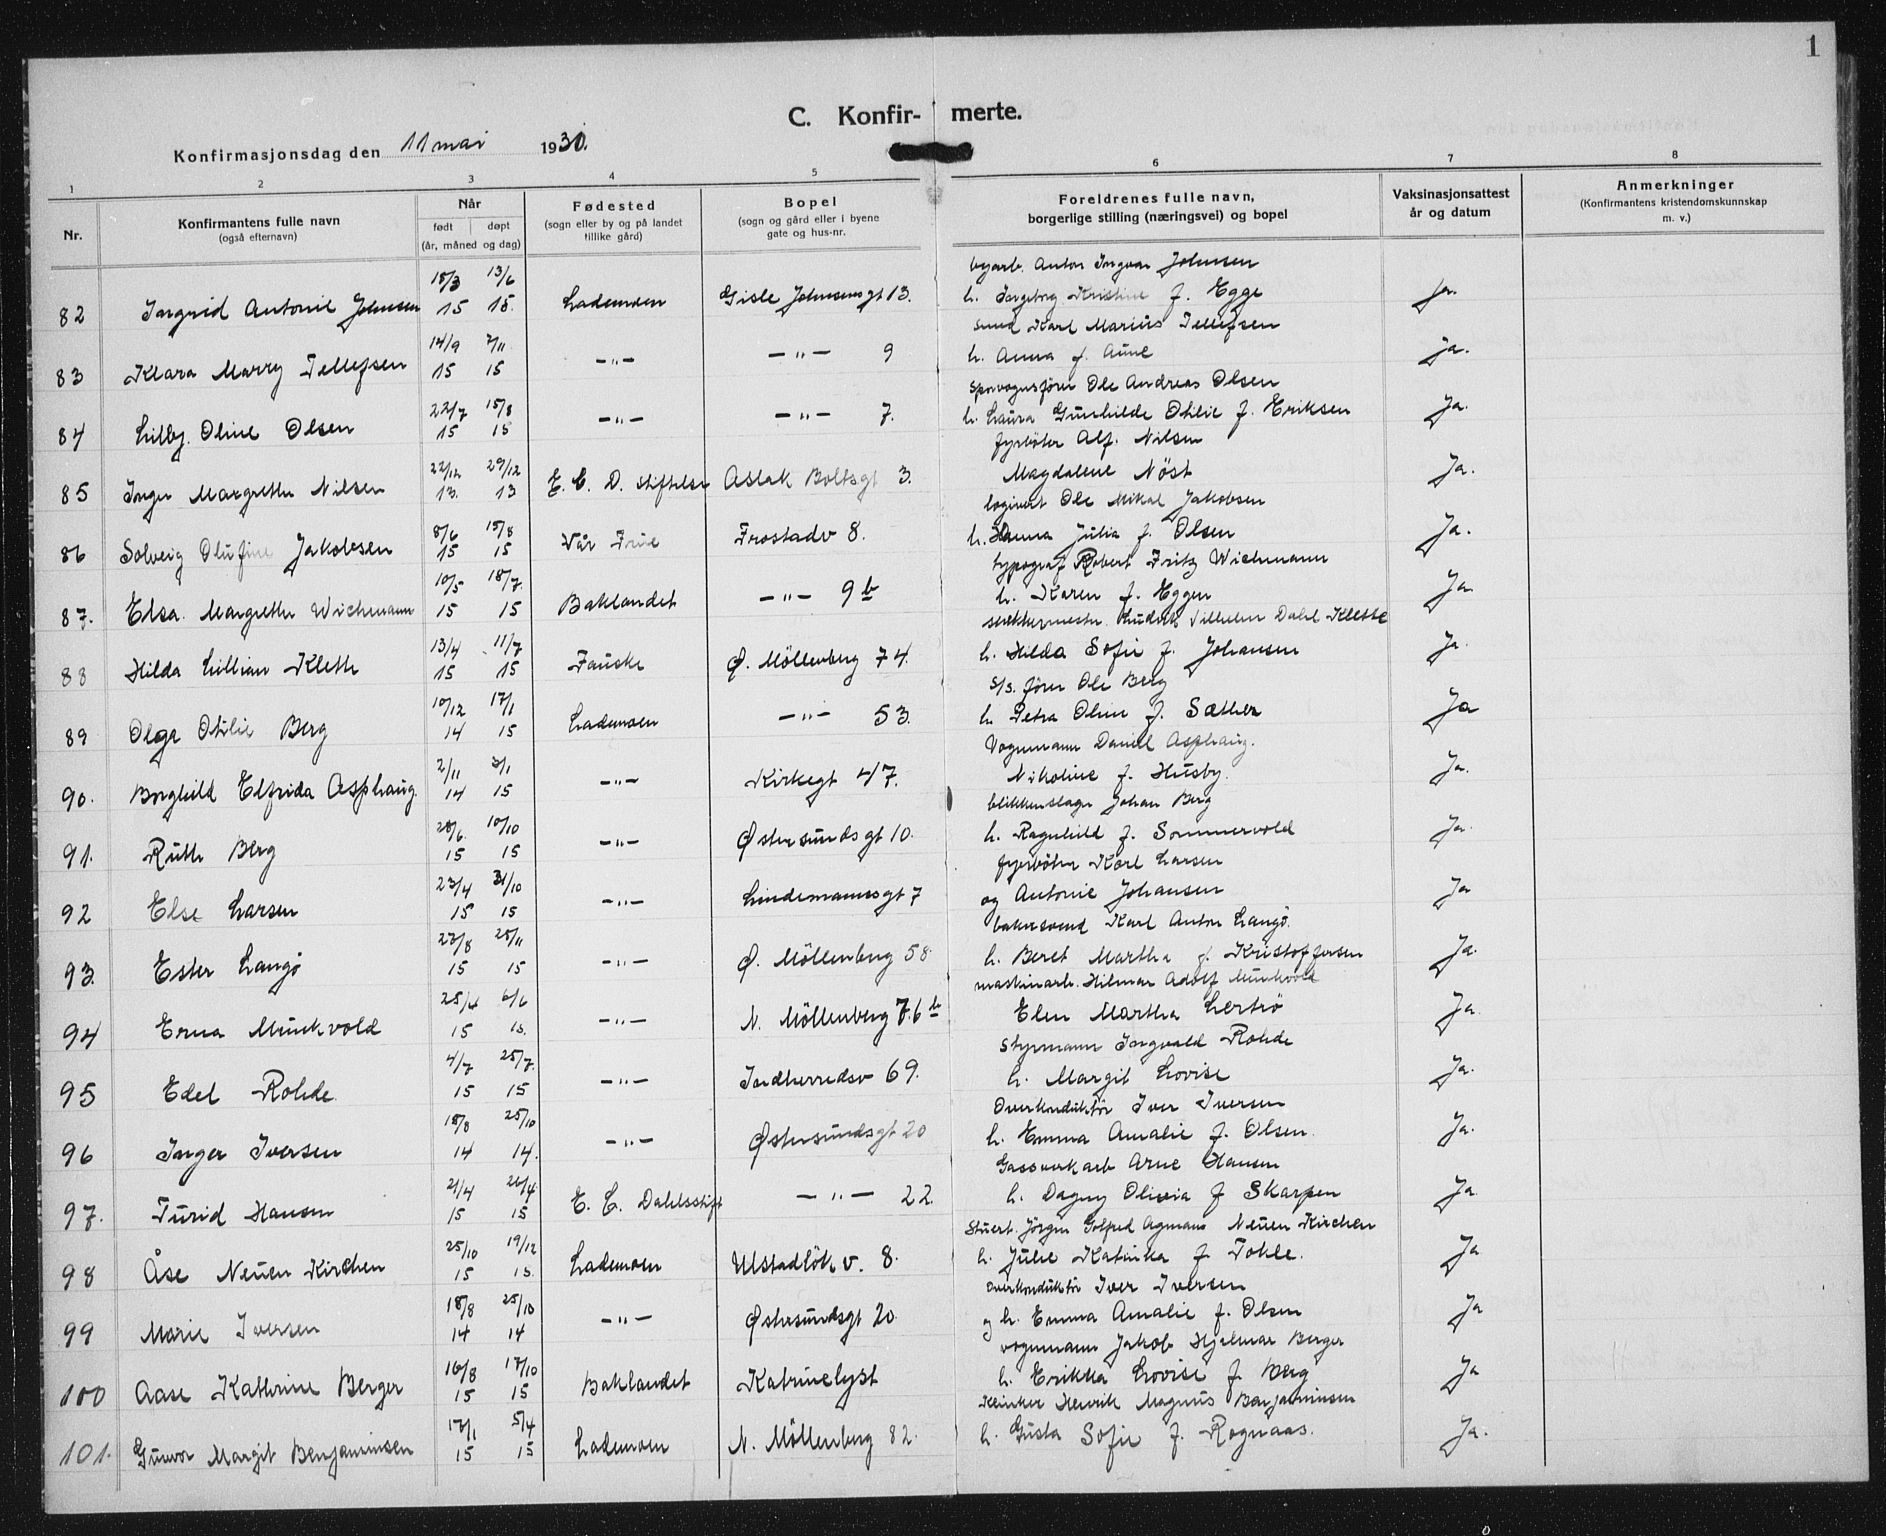 1
C. Konfir- merte.
Konfirmasjonsdag den 11 mai 1930.
1 2 3 4 5 6 7 8
Nr.
Konfirmantens fulle navn
(også efternavn)
Når
født døpt
(år, måned og dag)
Fødested
(sogn eller by og på landet
tillike gård)
Bopel
(sogn og gård eller i byene
gate og hus-nr.
Foreldrenes fulle navn,
borgerlige stilling (næringsvei) og bopel
Vaksinasjonsattest
år og datum
Anmerkninger
(Konfirmantens kristendomskunnskap
m. v.)
15/3 13/6 Anton Ingvar Johnsen
82 Ingrid Antonie Johnsen 15 15. Lademoen Gisle Johnsensgt 13. h. Ingeborg Kristine f. Egge Ja.
14/9 7/11 smed Karl Marius Tellefsen
83 Klara Marry Tellefsen 15 15 —"— —"— 9 h. Anna f. Aune Ja.
22/7 15/8 sporvognsfører Ole Andreas Olsen
84 Lilly. Oline Olsen 15 15 —"— —"— 7. h. Laura Gunhilde Othilie f. Eriksen Ja.
22/12 29/12 fyrbøter Alf. Nilsen
85 Inger Margrethe Nilsen 13. 13 E. C. D. stiftelse Aslak Boltsgt 3. Magdalene Nöst Ja.
8/6 15/8 logivert Ole Mikal Jakobsen
86 Solveig Olufine Jakobsen 15 15 Vår Frue Frostadv 8. h. Hanna Julia f. Olsen Ja.
10/5 18/7. typograf Robert Fritz Wichmann
87. Elsa. Margrethe Wichmann 15 15 Baklandet —"— 9 b h. Karen f. Eggen Ja
13/4 11/7 Ludvik Vilhelm Dahl Kleth
88 Hilda Lillian Kleth 15 15 Fauske Ø. Möllenberg 74. h. Hilda Sofie f. Johansen Ja.
10/12 17/1 S/s. fører Ole Berg
89 Olga Othilie Berg 14 15 Lademoen —"— 53. h. Petra Oline f. Sæther Ja
2/11 3/1 Vognmann Daniel Asphaug.
90. Borghild Elfrida Asphaug. 14 15 —"— Kirkegt 47. Nikoline f. Husby. Ja.
28/6. 10/10 blikkenslager Johan Berg
91. Ruth Berg 15 15 —"— Østersundsgt 10. h. Ragnhild f. Sommervold Ja.
23/4 31/10 fyrbøter Karl Larsen
92 Else Larsen 15 15 —"— Lindemannsgt 7 og Antonie Johansen Ja
27/8 28/11 bakersvend Karl Anton Langö.
93. Ester Langö 15 15 —"— Ø. Möllenberg 58. h. Beret Martha f. Kristoffersen Ja.
25/4 6/6 maskinarb. Hilmar Adolf Munkvold
94 Erna Munkvold 15 15. —"— N. Möllenberg 76 b Elen Martha Lertrö Ja.
4/7 25/7. Styrmann Ingvald Rohde
95 Edel Rohde. 15 15 —"— Indherredsv 69. h. Margit Lovise Ja.
18/8 25/10 Overkonduktör Iver Iversen
96 Inger Iversen 14 14. —"— Østersundsgt 20 h. Emma Amalie f. Olsen. Ja.
21/4 26/4 Gassverkarb Arne Hansen
97. Turid Hansen 15 15 E. C. Dahlsstift —"— 22. h. Dagny Olivia f Skarpen Ja.
25/10 19/12 Stuert. Jörgen Neuen Kirchen
98 Åse Neuen Kirchen 15 15. Lademoen Ulstadløkv. 8. h. Julie Katinka f. Tohle. Ja
18/8 25/10 overkonduktör Iver Iversen
99 Marie Iversen 14 14 —"— Østersundsgt 20. og h. Emma Amalie f. Olsen Ja
16/8 17/10 vognmann Jakob Hjalmar Berger
100 Aase Kathrine Berger 15 15 Baklandet Katrinelyst h. Erikka Lovise f. Berg Ja
17/1 5/4 Henrik Magnus Benjaminsen
101. Gunvor Margit Benjaminsen 15 15 Lademoen N. Möllenberg 82. h. Gusta Sofie f. Rognaas. Ja.